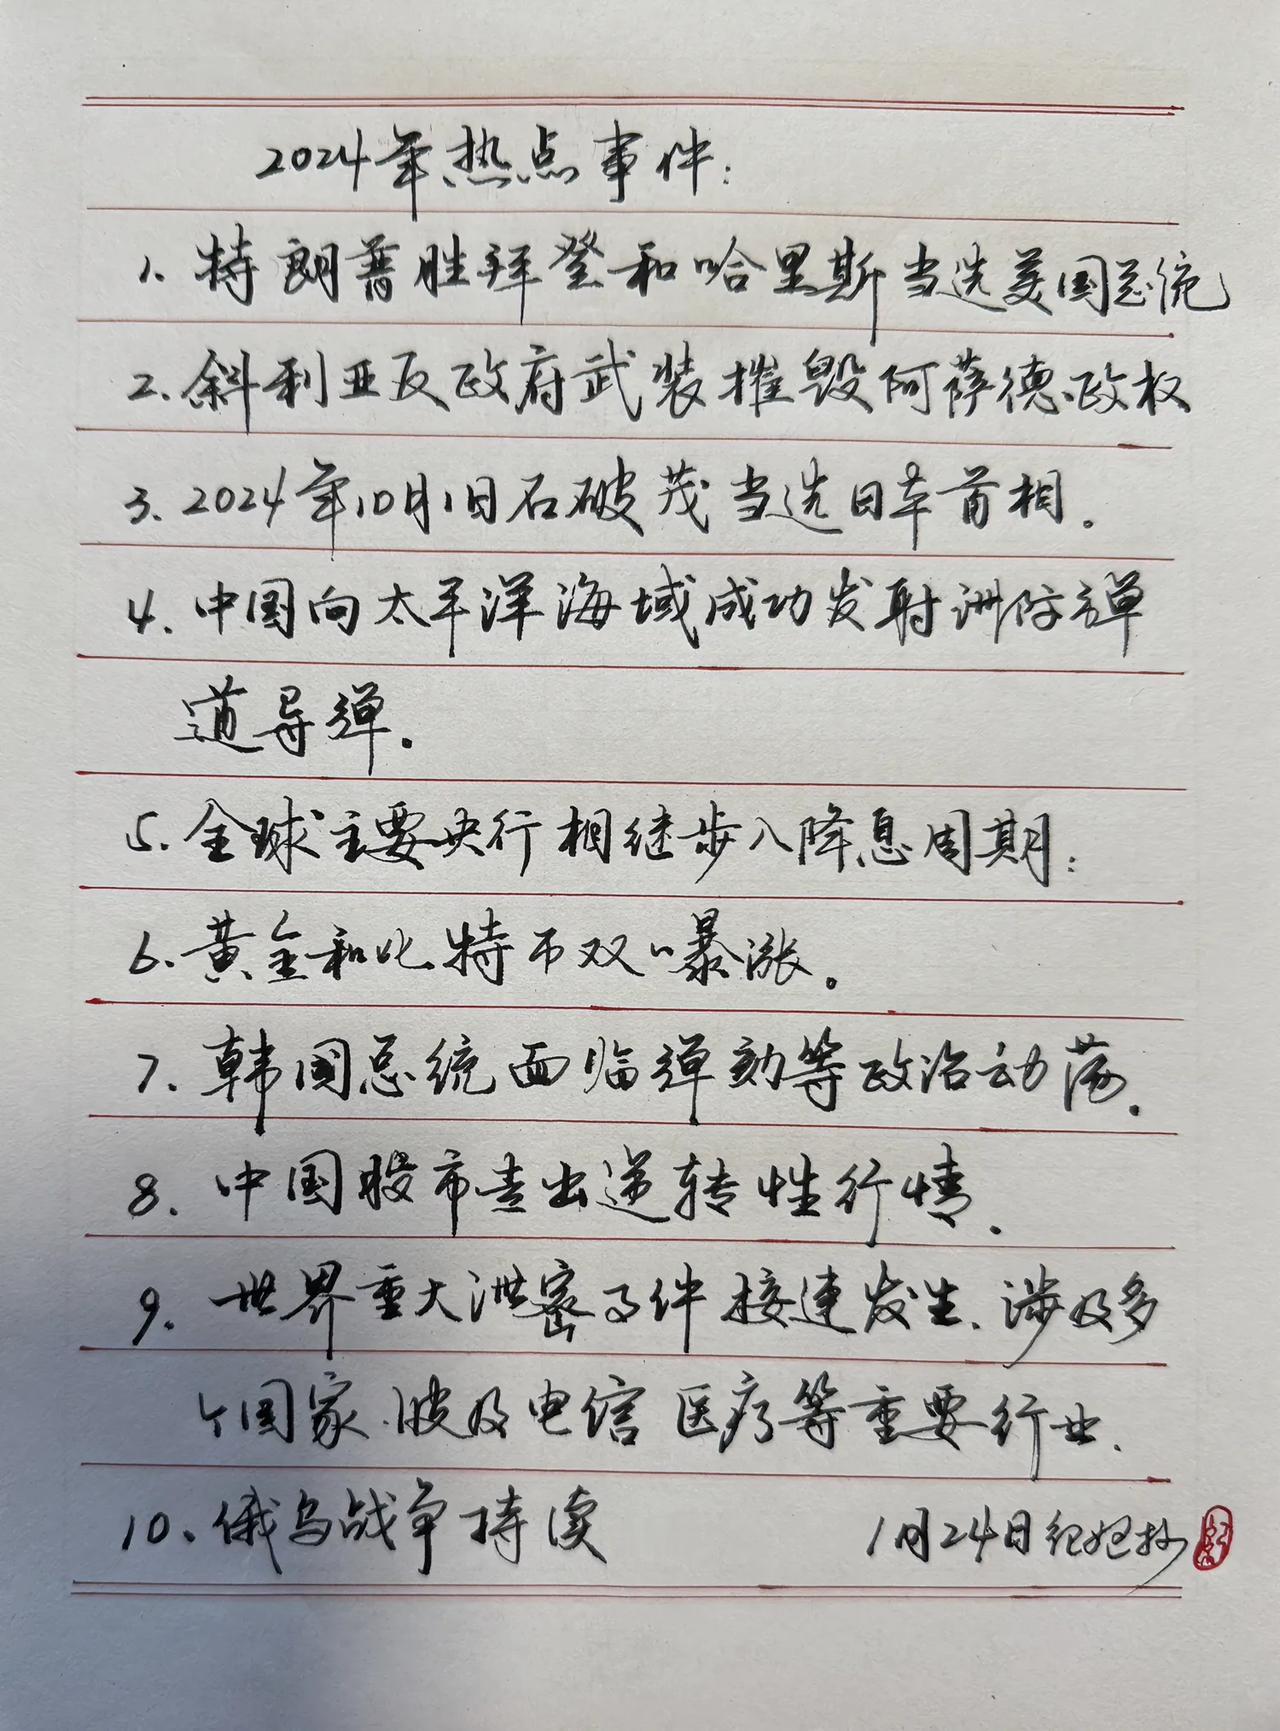 2024年热点事件:
1. 特朗普胜拜登和哈里斯当选美国总统
2. 斜利亚反政府武装摧毁阿萨德政权
3. 2024年10月1日石破茂当选日本首相.
4. 中国向太平洋海域成功发射洲际弹
道导弹.
5. 全球主要央行相继步入降息周期:
6. 黄金和比特币双嚗涨。
7. 韩国总统面临弹劾等政治动荡.
8. 中国股市走出逆转性行情.
9. 世界重大泄密事件接连发生、涉及多
个国家.波及电信医疗等重要行业.
10、俄乌战争持续 1月24日